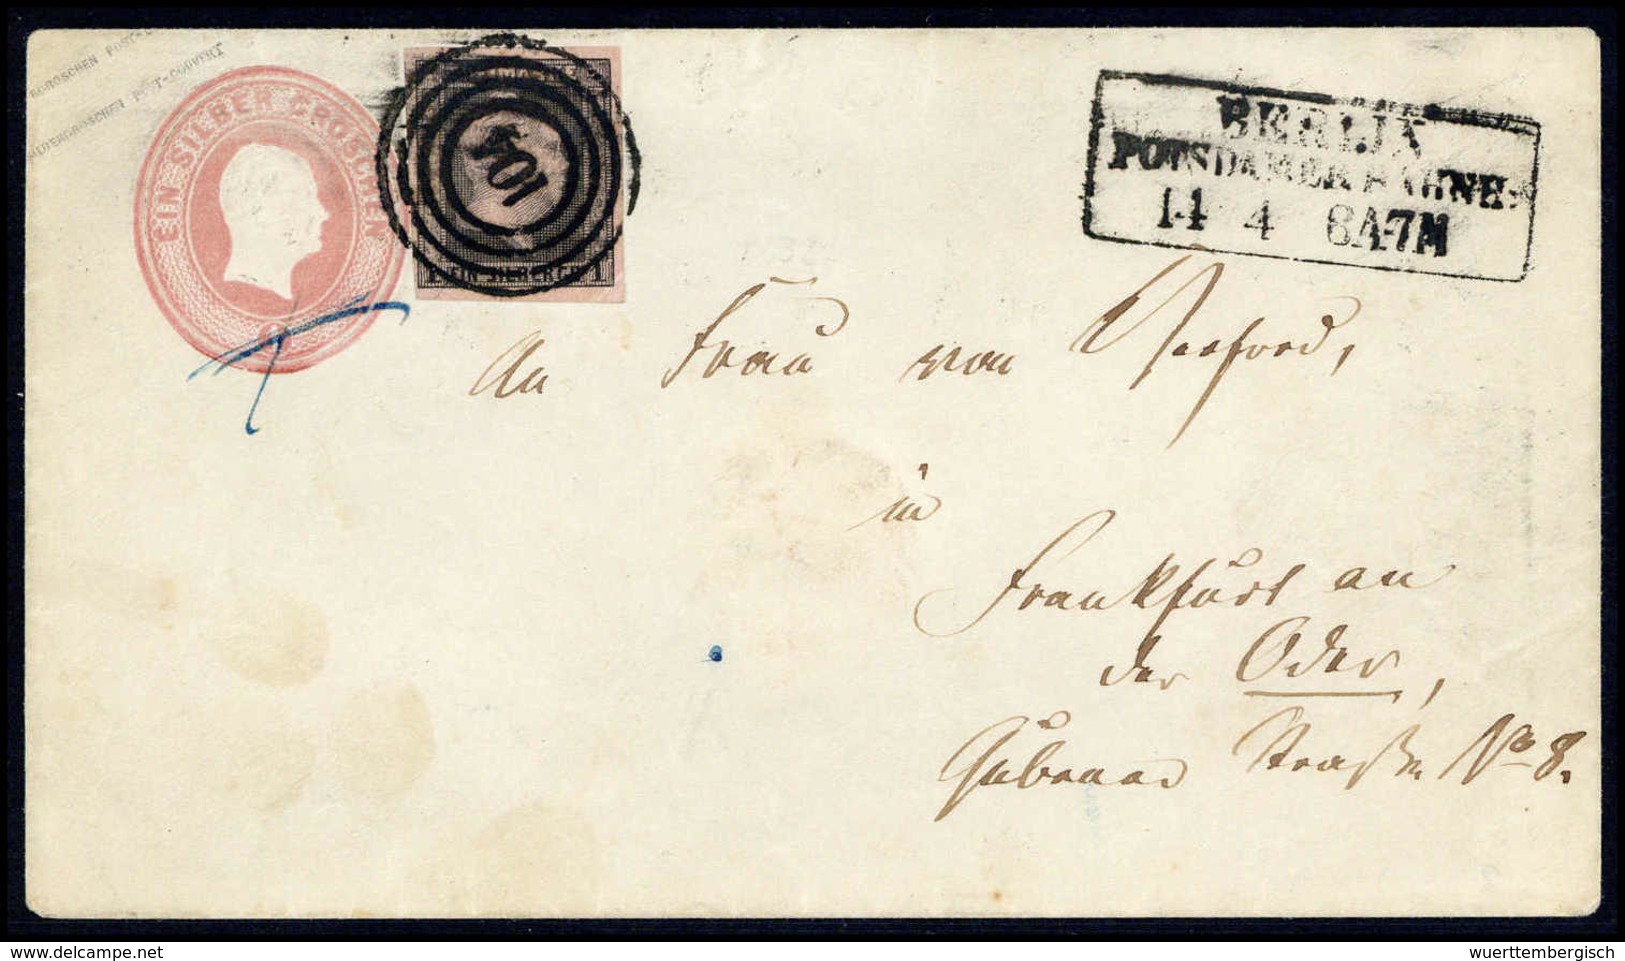 GROSCHEN POST-COUVERT
EIN SILBER GROSCHEN
1
104
1 EIN SILBERGR. 1
BERLIN
POTSDAMER BAHNH.
14 4 6A7M
An Frau von
in
Frankfurt an
der Oder,
Gubener Straße No 8.
Delcampe.net
wuerttembergisch